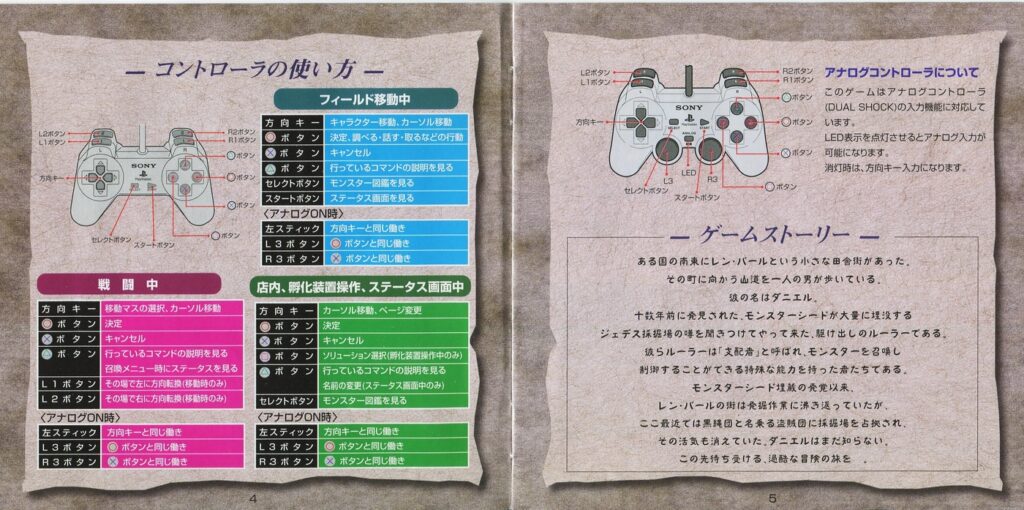 コントローラの使い方
L2ボタン
L1ボタン
方向キー
R2ボタン
R1ボタン
△ボタン
○ボタン
×ボタン
□ボタン
セレクトボタン
スタートボタン
SONY
フィールド移動中
方向キー キャラクター移動、カーソル移動
○ボタン 決定、調べる・話す・取るなどの行動
×ボタン キャンセル
△ボタン 行っているコマンドの説明を見る
セレクトボタン モンスター図鑑を見る
スタートボタン ステータス画面を見る
〈アナログON時〉
左スティック 方向キーと同じ働き
L3ボタン ○ボタンと同じ働き
R3ボタン ×ボタンと同じ働き
戦闘中
方向キー 移動マスの選択、カーソル移動
○ボタン 決定
×ボタン キャンセル
△ボタン 行っているコマンドの説明を見る
召喚メニュー時にステータスを見る
L1ボタン その場で左に方向転換(移動時のみ)
L2ボタン その場で右に方向転換(移動時のみ)
〈アナログON時〉
左スティック 方向キーと同じ働き
L3ボタン ○ボタンと同じ働き
R3ボタン ×ボタンと同じ働き
店内、孵化装置操作、ステータス画面中
方向キー カーソル移動、ページ変更
○ボタン 決定
×ボタン キャンセル
□ボタン ソリューション選択(孵化装置操作中のみ)
△ボタン 行っているコマンドの説明を見る
名前の変更(ステータス画面中のみ)
セレクトボタン モンスター図鑑を見る
〈アナログON時〉
左スティック 方向キーと同じ働き
L3ボタン ○ボタンと同じ働き
R3ボタン ×ボタンと同じ働き
4
L2ボタン
L1ボタン
方向キー
R2ボタン
R1ボタン
△ボタン
○ボタン
×ボタン
□ボタン
SONY
SELECT
START
ANALOG
セレクトボタン
L3
LED
R3
スタートボタン
アナログコントローラについて
このゲームはアナログコントローラ
(DUAL SHOCK)の入力機能に対応して
います。
LED表示を点灯させるとアナログ入力が
可能になります。
消灯時は、方向キー入力になります。
ゲームストーリー
ある国の南東にレン・バールという小さな田舎街があった。
その町に向かう山道を一人の男が歩いている。
彼の名はダニエル。
十数年前に発見された、モンスターシードが大量に埋没する
ジェデス採掘場の噂を聞きつけてやって来た、駆け出しのルーラーである。
彼らルーラーは「支配者」と呼ばれ、モンスターを召喚し
制御することができる特殊な能力を持った者たちである。
モンスターシード埋蔵の発覚以来、
レン・バールの街は発掘作業に沸き返っていたが、
ここ最近では黒騎団と名乗る盗賊団に採掘場を占拠され、
その活気も消えていた。ダニエルはまだ知らない。
この先待ち受ける、過酷な冒険の旅を
5